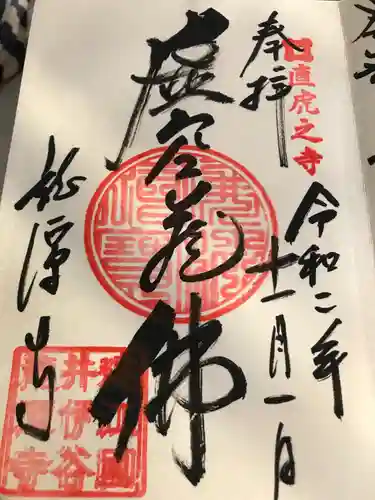 奉拝
直虎之寺
令和二年
十一月一日
虚空蔵佛
佛法僧寶
龍潭寺
井伊谷
龍潭寺